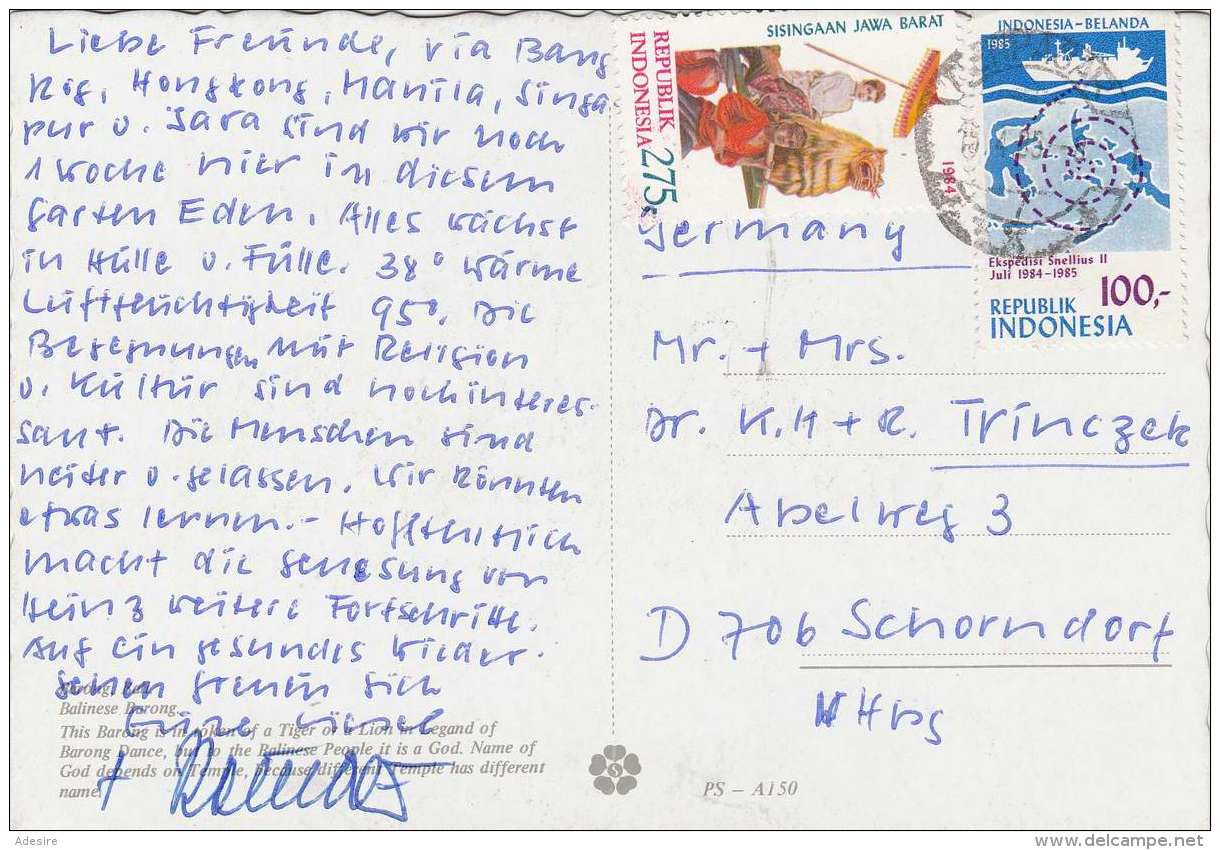 Liebe Freunde, via Bang
kog, Hongkong, Manila, Singa
pur u. Java sind wir noch
1 Woche hier in diesem
Garten Eden. Alles wächst
in Hülle u. Fülle. 38° Wärme
Luftfeuchtigkeit 95%. Die
Begegnungen mit Religion
u. Kultur sind hochinteres-
sant. Die Menschen sind
heiter u. gelassen. Wir könnten
etwas lernen. - Hoffentlich
macht die Genesung von
Heinz weitere Fortschritte.
Auf ein gesundes Wieder-
sehen freuen sich
Eure
+
Barong, Bali
Balinese Barong.
This Barong is in token of a Tiger or a Lion in Legand of
Barong Dance, but to the Balinese People it is a God. Name of
God depends on Temple, because different Temple has different
name.
PS – A150
SISINGAAN JAWA BARAT
REPUBLIK
INDONESIA 275
1984
INDONESIA-BELANDA
1985
Ekspedisi Snellius II
Juli 1984-1985
100,-
REPUBLIK
INDONESIA
Germany
Mr. + Mrs.
Dr. K.H + R. Trinczek
Abelweg 3
D 706 Schorndorf
Adesire
www.delcampe.net